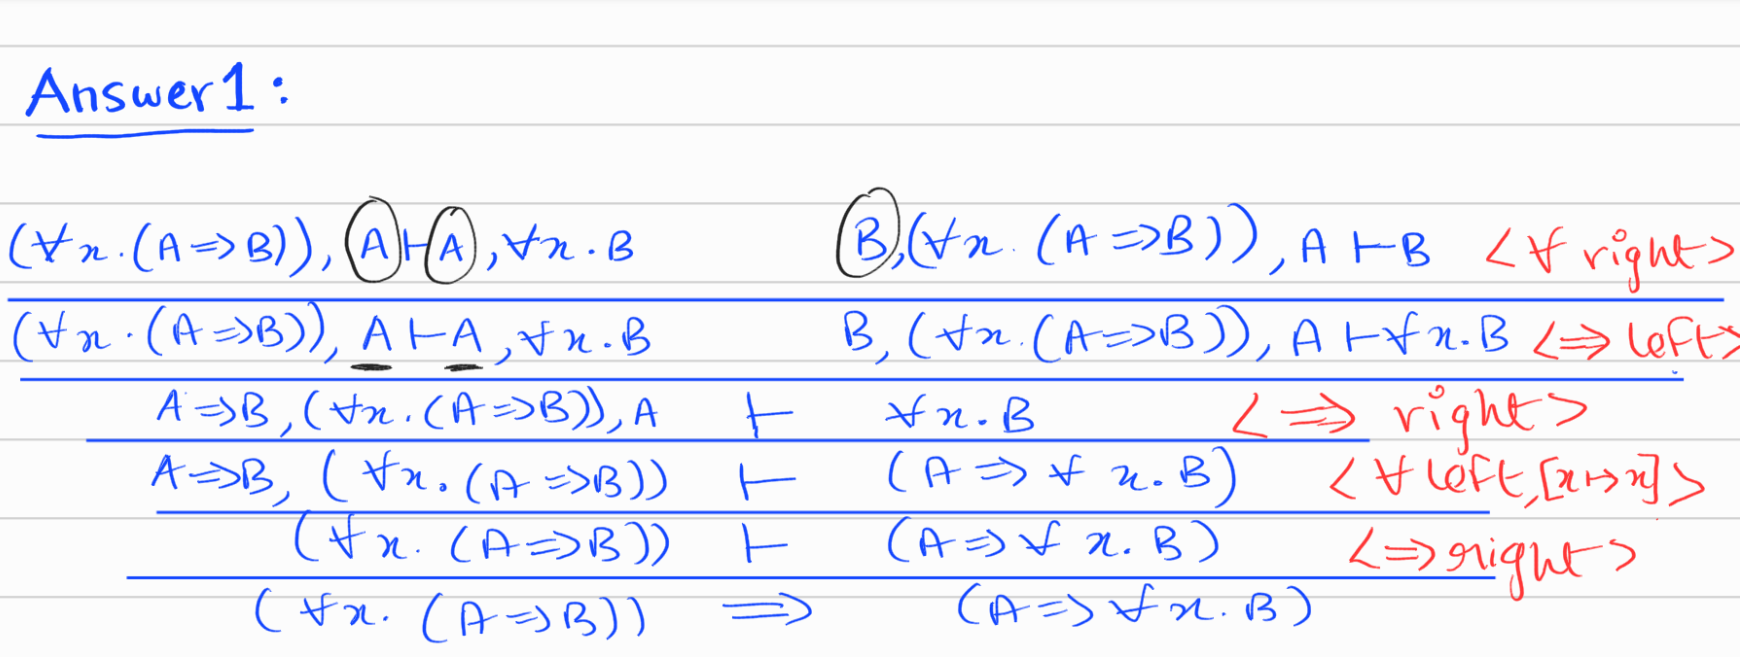 Answer 1 :
(∀x.(A⇒B)), A ⊢ A, ∀x.B    B, (∀x.(A⇒B)), A ⊢ B <∀ right>
(∀x.(A⇒B)), A ⊢ A, ∀x.B    B, (∀x.(A⇒B)), A ⊢ ∀x.B <⇒ left>
A⇒B, (∀x.(A⇒B)), A ⊢ ∀x.B <⇒ right>
A⇒B, (∀x.(A⇒B)) ⊢ (A⇒∀x.B) <∀ left, [x↦x]>
(∀x.(A⇒B)) ⊢ (A⇒∀x.B) <⇒ right>
(∀x.(A⇒B)) ⇒ (A⇒∀x.B)